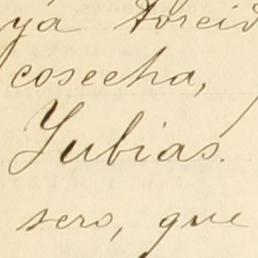 ya torcid
cosecha,
Yubias.
sero, que